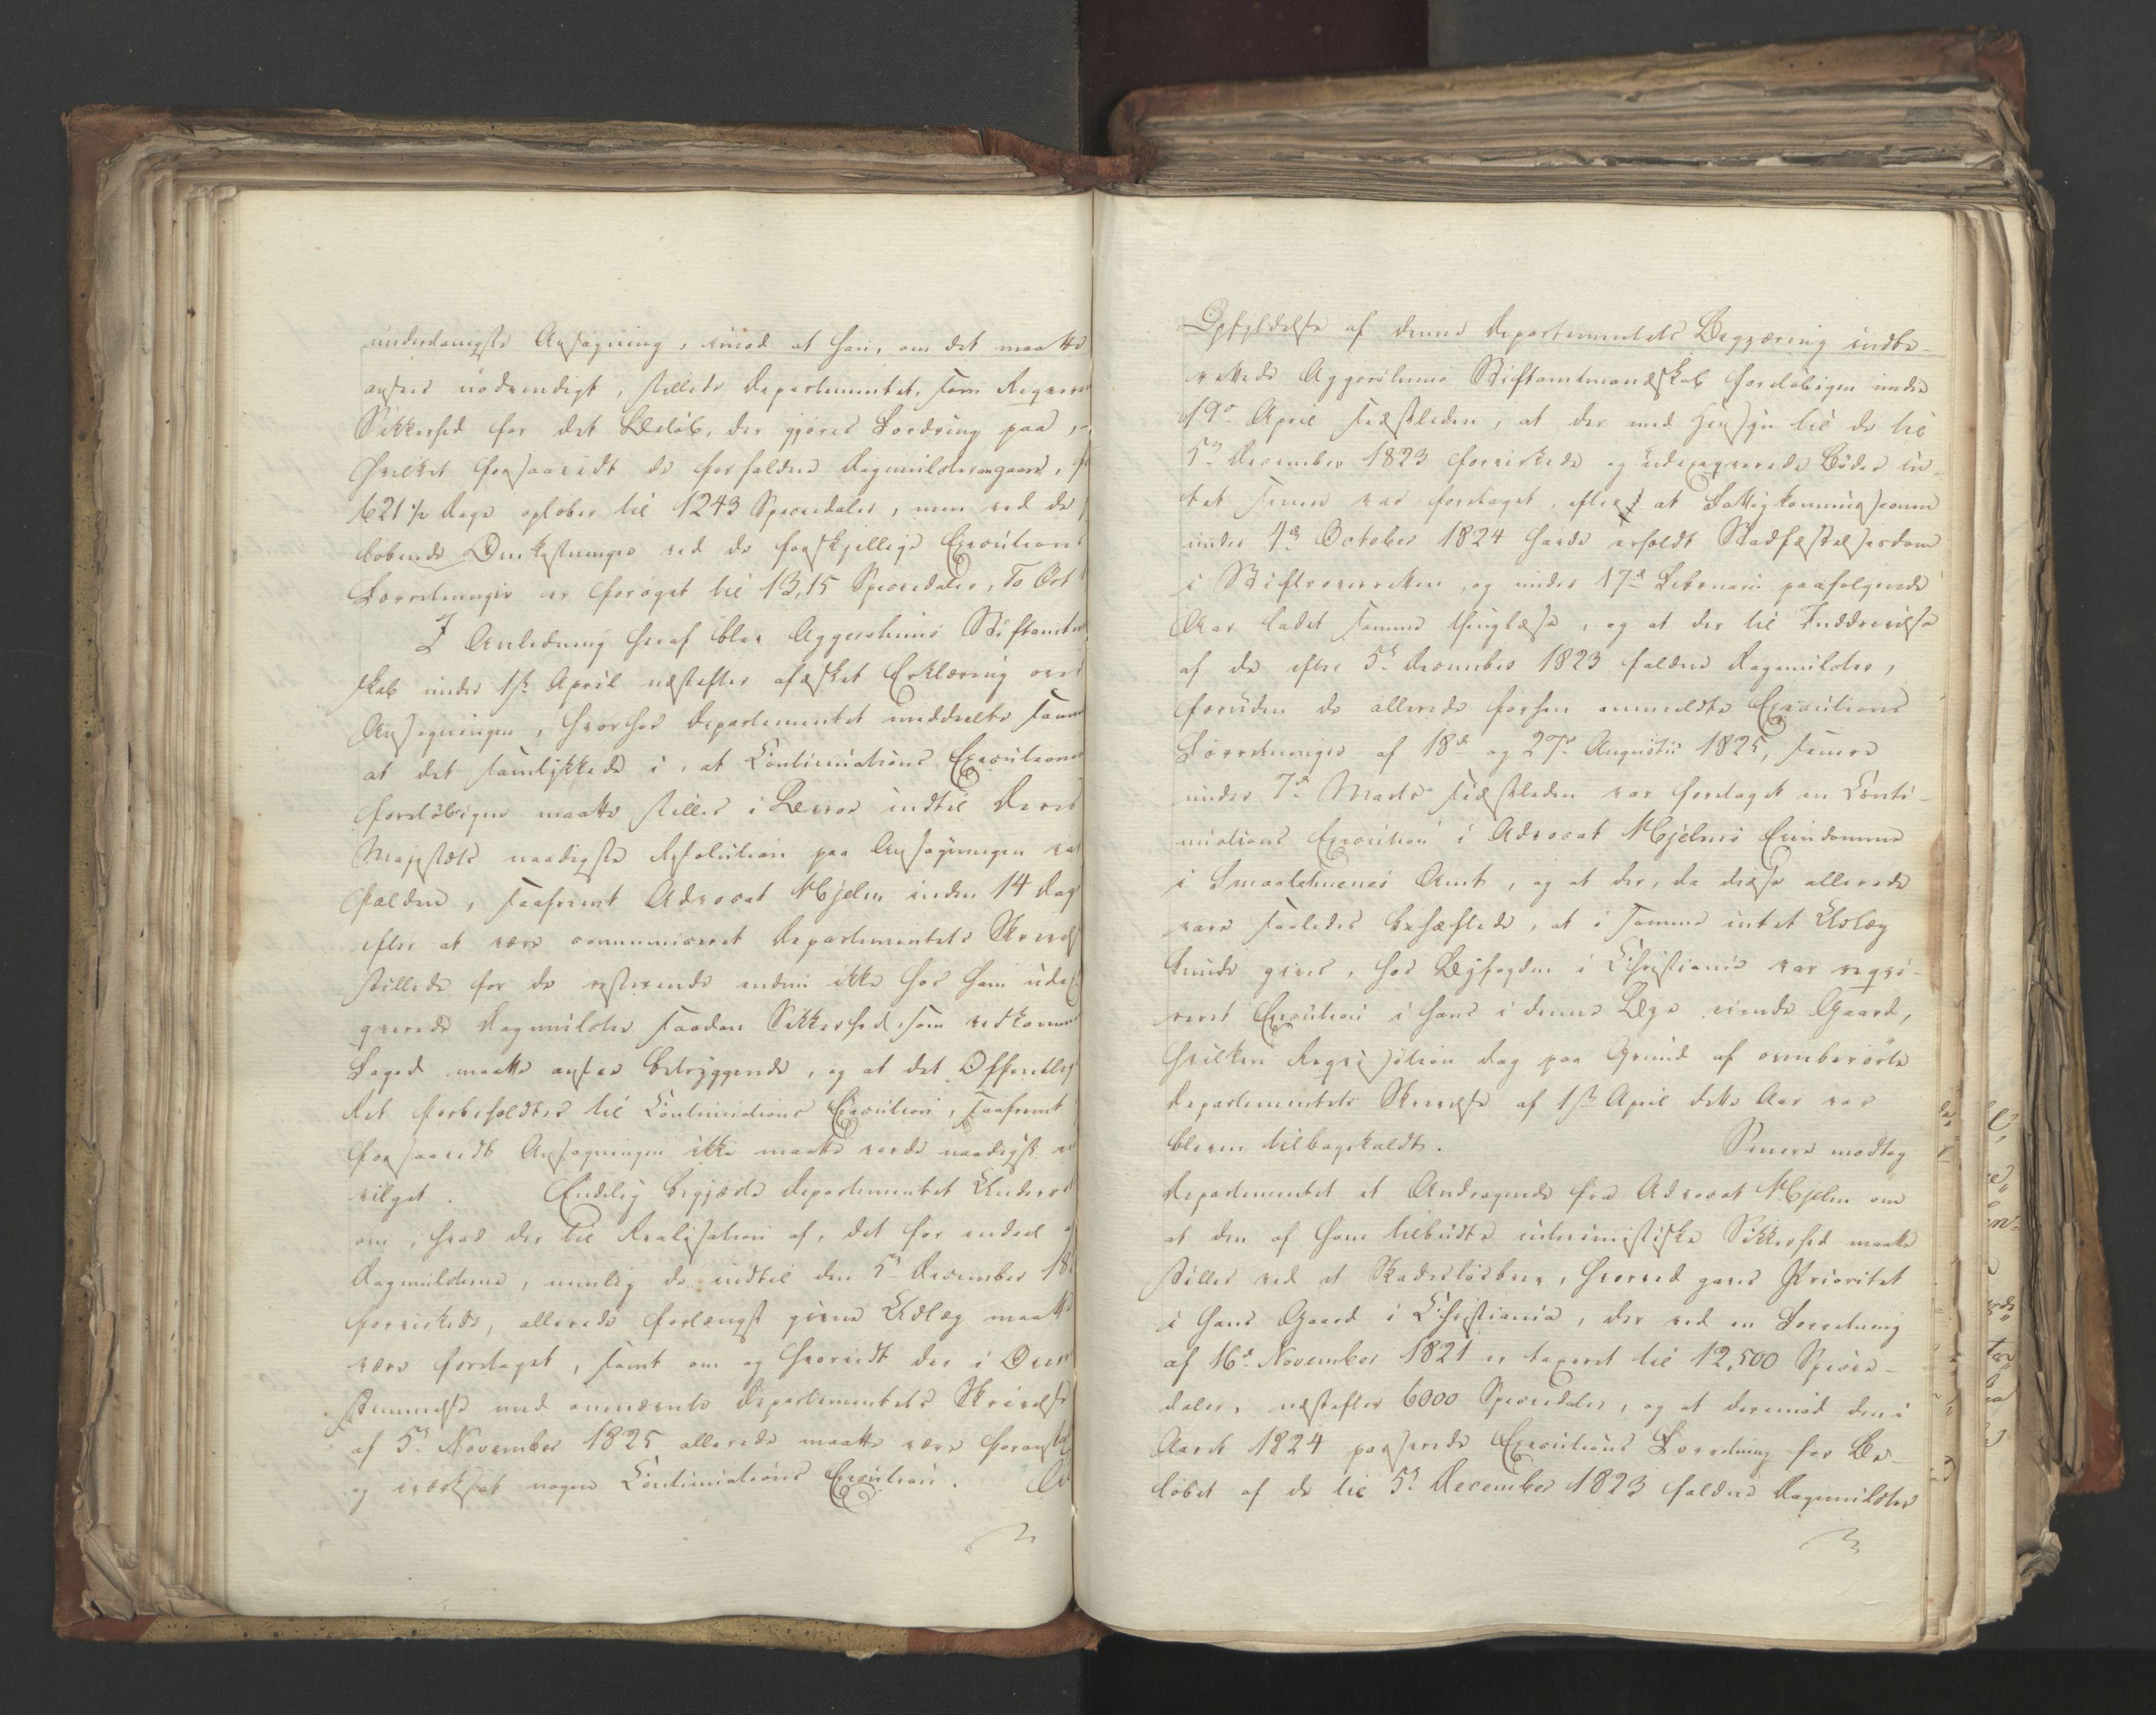 underdanigste Ansøgning, imod at han, om det maatte
ansees nødvendigt, stillede Departementet som
Sikkerhed for det Beløb, der gjøres Fordring paa,
hvilket forsaavidt de forfaldne Dagmulcter angaaer,
621 1/2 Dage opløber til 1243 Speciedaler, men ved de
løbende Omkostninger ved de forskjellige Executions
Forretninger er forøget til 1315 Speciedaler, To Ort
I Anledning heraf blev Aggershuus Stiftamtm
skab under 1ste April næstefter afæsket Erklæring over
Ansøgningen, hvorhos Departementet meddeelte samme
at det samtykkede i, at Continuations Executionen
foreløbigen maatte stilles i Beroe indtil Deres
Majestæts naadigste Resolution paa Ansøgningen var
falden, saafremt Advocat Hjelm inden 14 Dage
efter at være communiceret Departementets Skrivelse
stillede for de resterende endnu ikke hos ham udex
qverede Dagmulcter saadan Sikkerhed, som vedkommende
Foged maatte ansee betryggende, og at det Offentlige
Ret forbeholdtes til Continuations Execution, saafremt
forsaavidt Ansøgningen ikke maatte vorde naadigst
vilget. Endelig begjærte Departementet Underret
om, hvad der til Realisation af, det for endeel
Dagmulcterne, nemlig de indtil den 5te December 18
forvirkede, allerede forlængst givne Udlæg maatte
være foretaget, samt om og hvorvidt der i Over
stemmelse med ommeldte Departementets Skrivelse
af 5te November 1825 allerede maatte være foranstal
og iværksat nogen Continuations Execution.
Opfyldelse af denne Departementets Begjæring indbe-
rettede Aggershuus Stiftamtmandskab foreløbigen under
19de April sidstleden, at der med Hensyn til de til
5te December 1823 forvirkede og udexqverede Bøder in-
tet senere var foretaget, efter at Fattigkommissionen
under 4de October 1824 havde erholdt Stadfæstelsesdom
i Stiftsoverretten, og under 17de Februarii paafølgende
Aar ladet samme thinglæse, og at der til Inddrivelse
af de efter 5te December 1823 faldne Dagmulcter,
foruden de allerede forhen anmeldte Executions
Forretninger af 18de og 27de Augustii 1825, senere
under 7de Marts sidstleden var foretaget en Conti-
nuations Execution i Advocat Hjelms Eiendomme
i Smaalehnenes Amt, og at der, da disse allerede
vare saaledes behæftede, at i samme intet Udlæg
kunde gives, hos Byfogden i Christiania var reqvi-
reret Execution i hans i denne Bye eiende Gaard,
hvilken Reqvisition dog paa Grund af ovenberørte
Departementets Skrivelse af 1ste April dette Aar var
bleven tilbagekaldt. Senere modtog
Departementet et Andragende fra Advocat Hjelm om
at den af ham tilbudte interimistiske Sikkerhed maatte
stilles ved et Skadesløsbrev, hvorved gaves Prioritet
i hans Gaard i Christiania, der ved en Forretning
af 16de November 1821 er taxeret til 12,500 Specie-
daler, næstefter 6000 Speciedaler, og at derimod den i
Aaret 1824 passerede Executions Forretning for Be-
løbet af de til 5te December 1823 faldne Dagmulcter